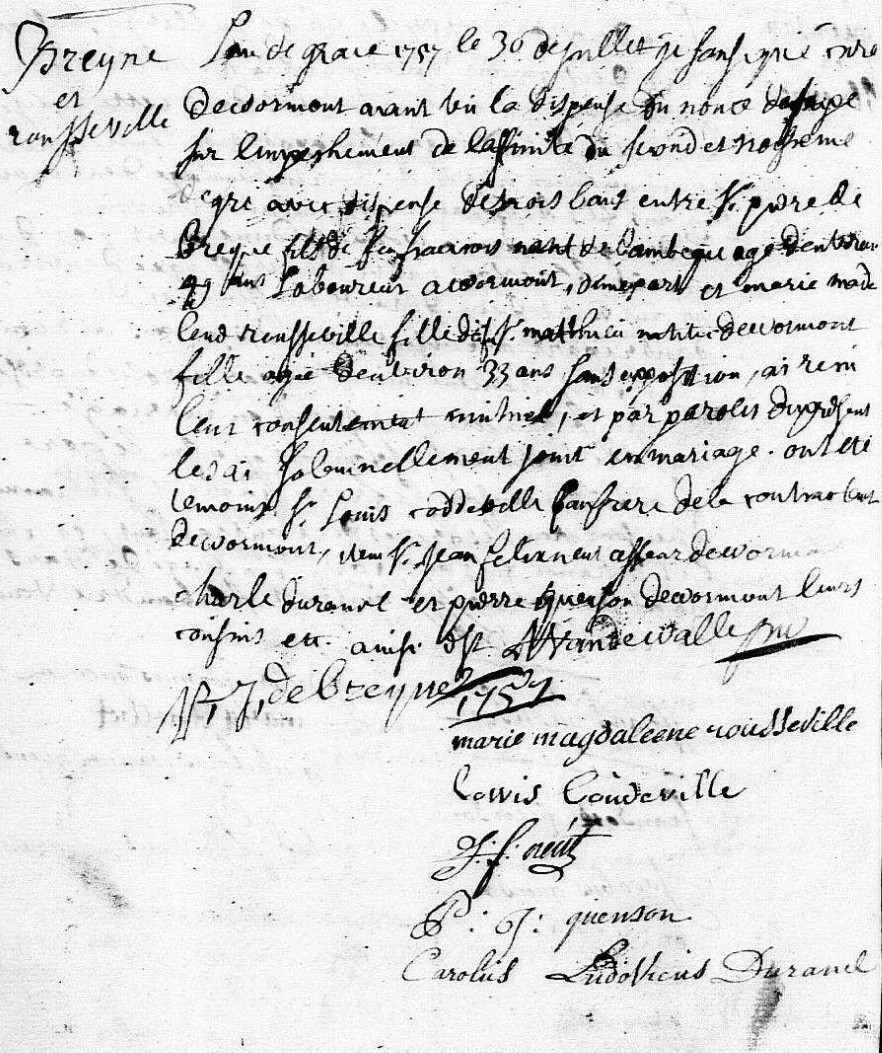 Breyne
et
rousseville
Lan de grace 1757 le 30 de juillet je sousigné cure
de wormont aiant vu la dispense du nonce du pape
sur lempeshement de laffinité du second et troisieme
degré avec dispense des trois bans entre Sr. pierre de
breyne fils de feu francois natif de lambeque agé denviron
49 ans laboureur a wormont, dune part et marie made
lene rousseville fille de Sr. matthieu native de wormont
fille agée denviron 33 ans sans opposition, ai reçu
leur consentement mutuel, et par paroles du présent
les ai solemnellement joint en mariage. ont été
temoins Sr. Louis coddeville baufrere de la contractant
de wormont, item Sr. jean felix neut de wormo
charle duranel et pierre quenson de wormont leurs
cousins etc. ainsi est Vandewalle
P, J, de breyne 1757
marie magdaleene rousseville
Lowis Coudeville
J: f: neut
P: J: quenson
Carolus Ludovicus Duranel